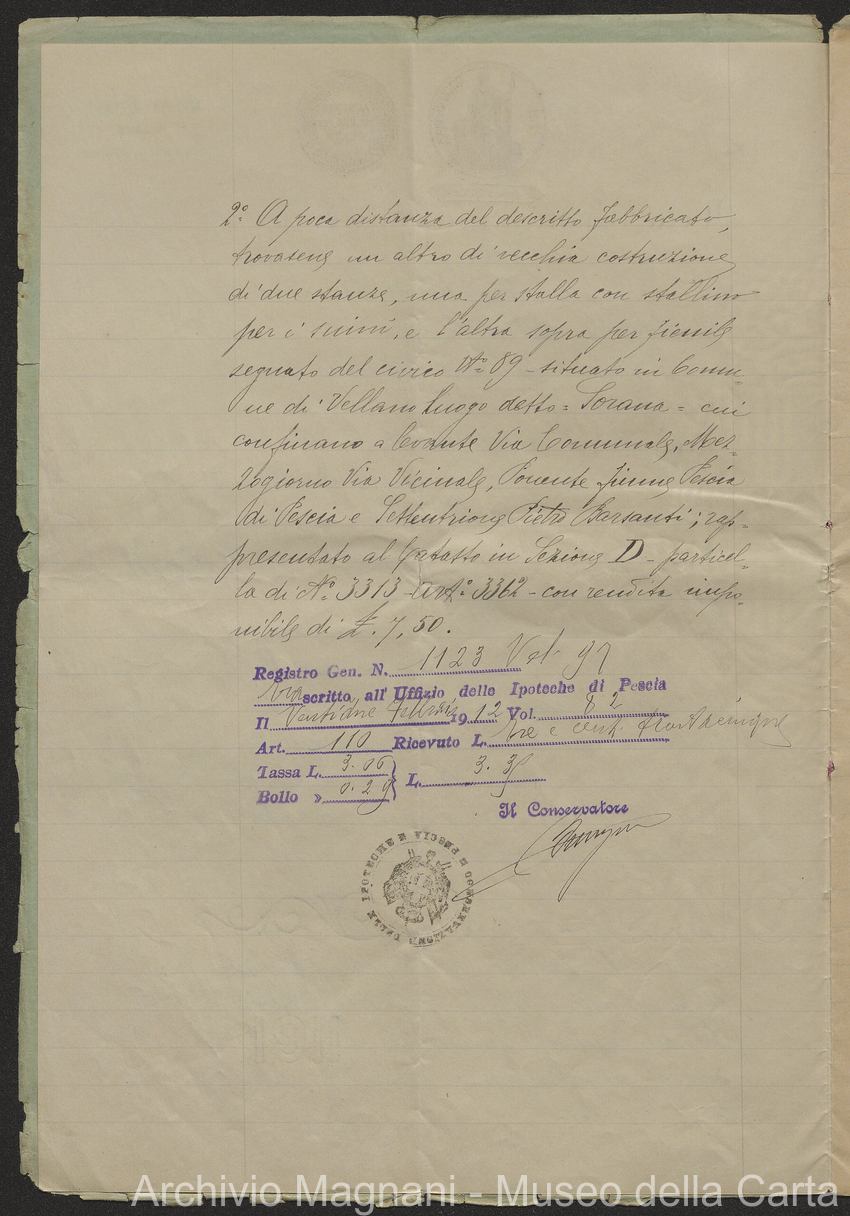 2º. A poca distanza del descritto fabbricato,
trovasene un altro di vecchia costruzione
di due stanze, una per stalla con stallino
per i suini, e l'altra sopra per fienile
segnato del civico Nº 89 - situato in Comu-
ne di Vellano luogo detto = Sorana = cui
confinano a Levante Via Comunale, Mez-
zogiorno Via Vicinale, Ponente fiume Pescia
di Pescia e Settentrione Pietro Barsanti; rap-
presentato al Catasto in Sezione D - particel-
la di Nº 3313 - artº 3362 - con rendita impo-
nibile di £. 7,50.
Registro Gen. N. 1123 Vol 97
Trascritto all' Uffizio delle Ipoteche di Pescia
Il Ventidue Febbraio 1912 Vol. 82
Art. 110 Ricevuto L. tre e cent. trentacinque
Tassa L. 3.06
Bollo » 0.29 } L. 3.35
Il Conservatore
CONSERVAZIONE DELLE IPOTECHE PESCIA
Archivio Magnani - Museo della Carta